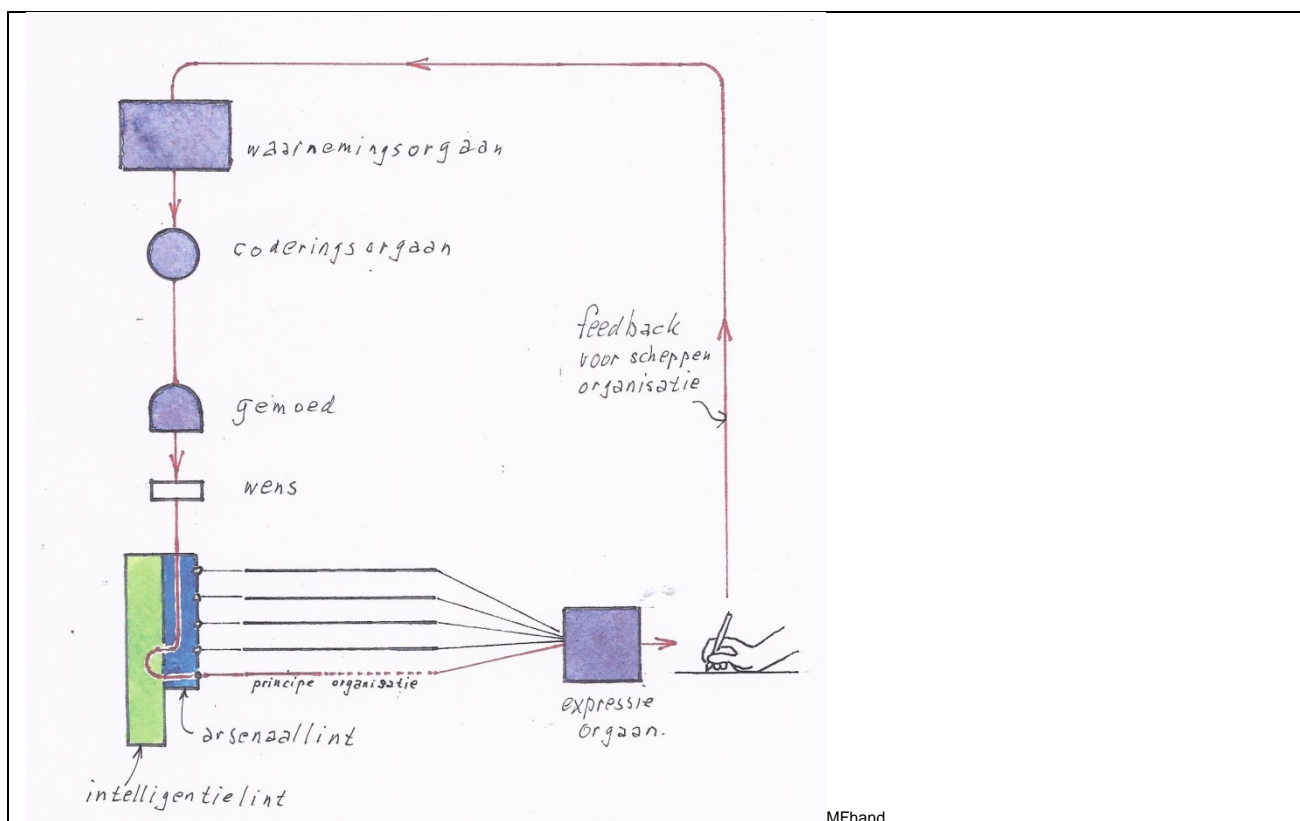 waarnemingsorgaan
coderingsorgaan
feedback
voor scheppen
organisatie
gemoed
wens
principe organisatie
expressie
orgaan.
arsenaallint
intelligentielint
MEhand